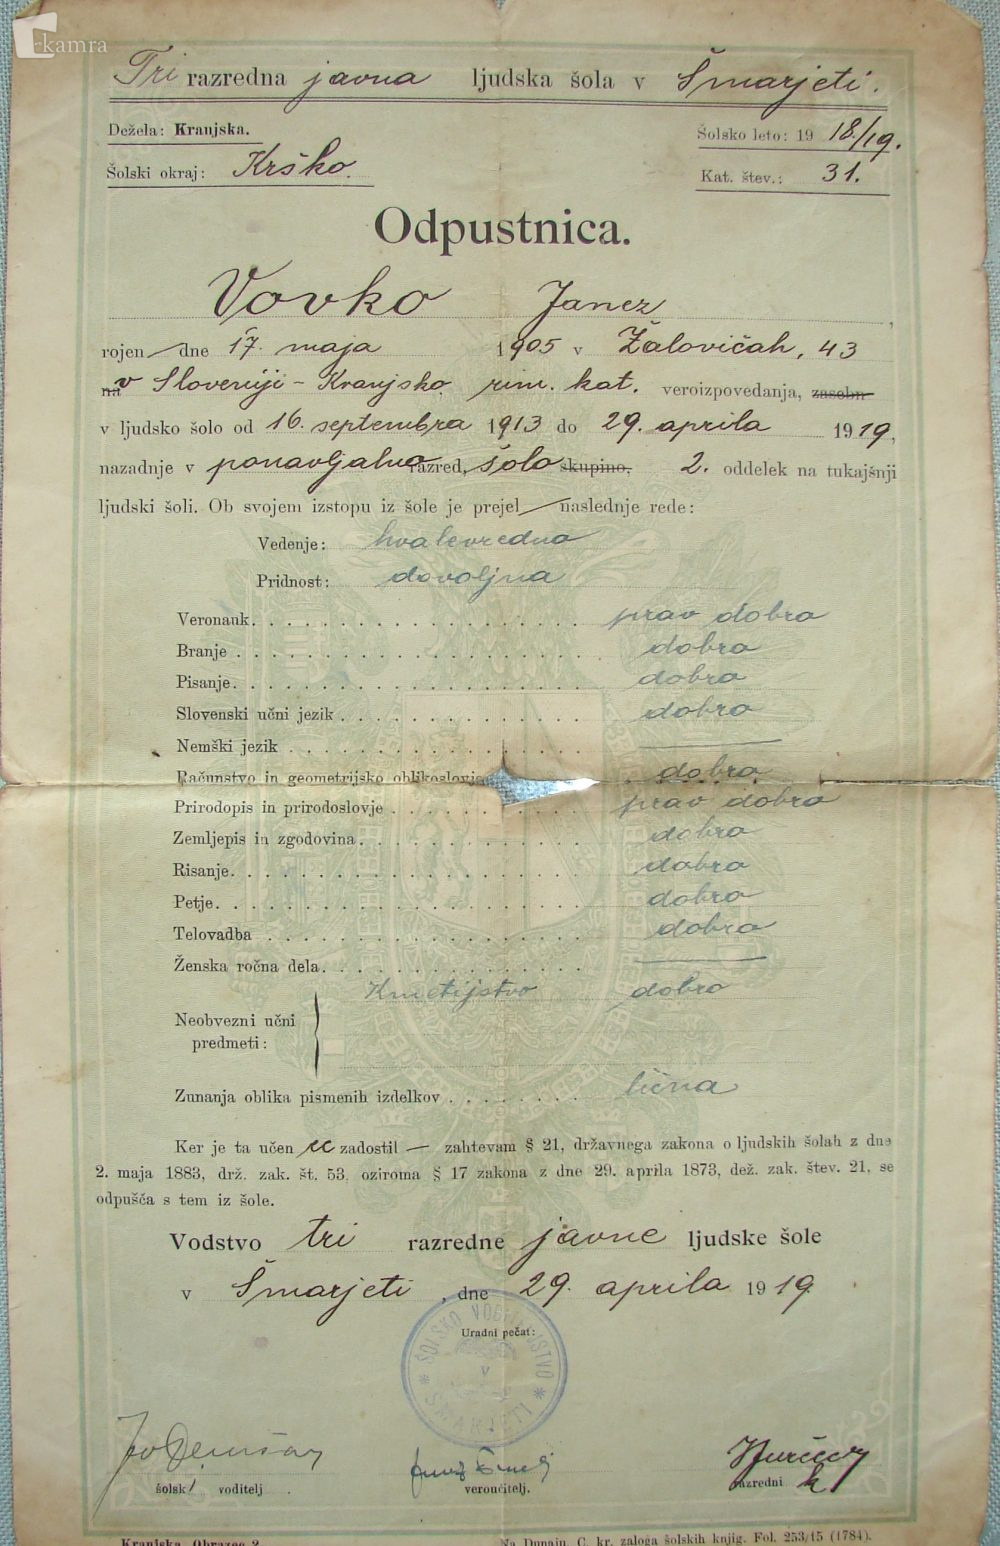 kamra
Tri razredna javna ljudska šola v Šmarjeti.
Dežela: Kranjska.
Šolsko leto: 19 18./19.
Šolski okraj: Krško.
Kat. štev.: 31.
Odpustnica.
Vovko Janez,
rojen dne 17. maja 1905 v Žalovičah, 43
na v Sloveniji - Kranjsko, rim. kat. veroizpovedanja, zasebn
v ljudsko šolo od 16. septembra 1913 do 29. aprila 1919,
nazadnje v ponavljalno razred, šolo skupino, 2. oddelek na tukajšnji
ljudski šoli. Ob svojem izstopu iz šole je prejel naslednje rede:
Vedenje: hvalevredno
Pridnost: dovoljna
Veronauk. prav dobro
Branje dobro
Pisanje. dobro
Slovenski učni jezik dobro
Nemški jezik
Računstvo in geometrijsko oblikoslovje dobro
Prirodopis in prirodoslovje prav dobro
Zemljepis in zgodovina. dobro
Risanje. dobro
Petje. dobro
Telovadba dobro
Ženska ročna dela.
Kmetijstvo dobro
Neobvezni učni
predmeti:
Zunanja oblika pismenih izdelkov lična
Ker je ta učen ec zadostil — zahtevam § 21, državnega zakona o ljudskih šolah z dne
2. maja 1883, drž. zak. št. 53, oziroma § 17 zakona z dne 29. aprila 1873, dež. zak. štev. 21, se
odpušča s tem iz šole.
Vodstvo tri razredne javne ljudske šole
v Šmarjeti, dne 29. aprila 1919
Uradni pečat:
ŠOLSKO VODITELJSTVO
V
ŠMARJETI
šolsk/ voditelj
veroučitelj.
razredni
Kranjska, Obrazec 2.
Na Dunaju, C. kr. zaloga šolskih knjig. Fol. 253/15 (1784).